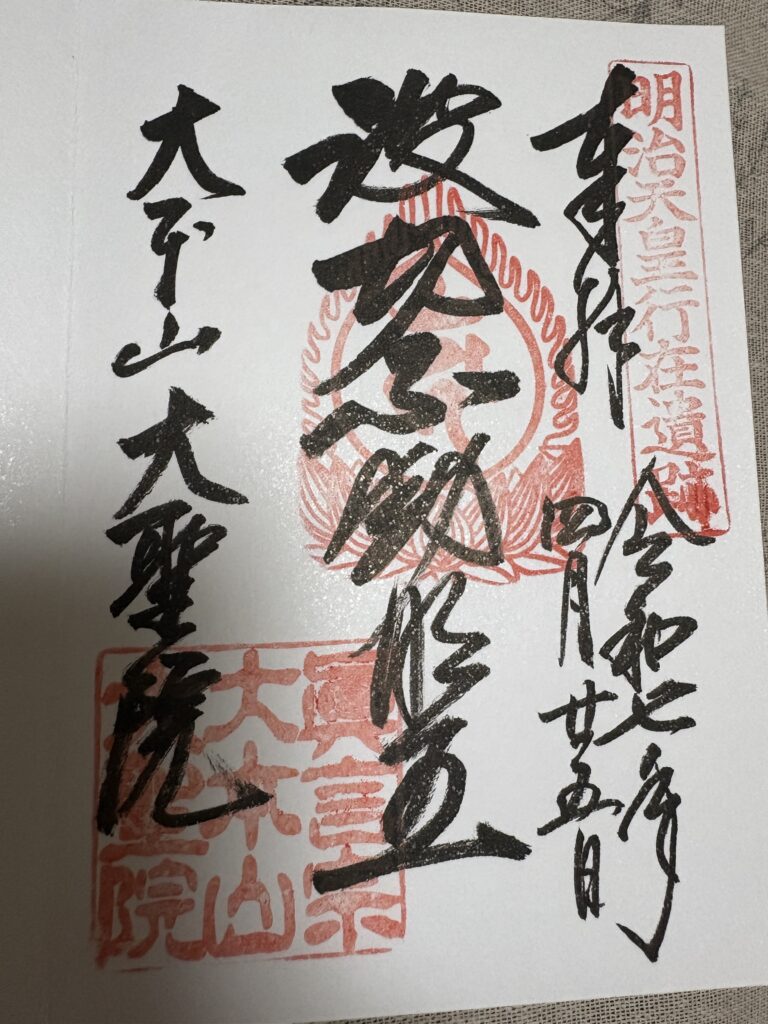 明治天皇行在遺跡
奉拝
令和七年
四月廿五日
波切不動明王
大本山大聖院
眞言宗
大本山
大聖院